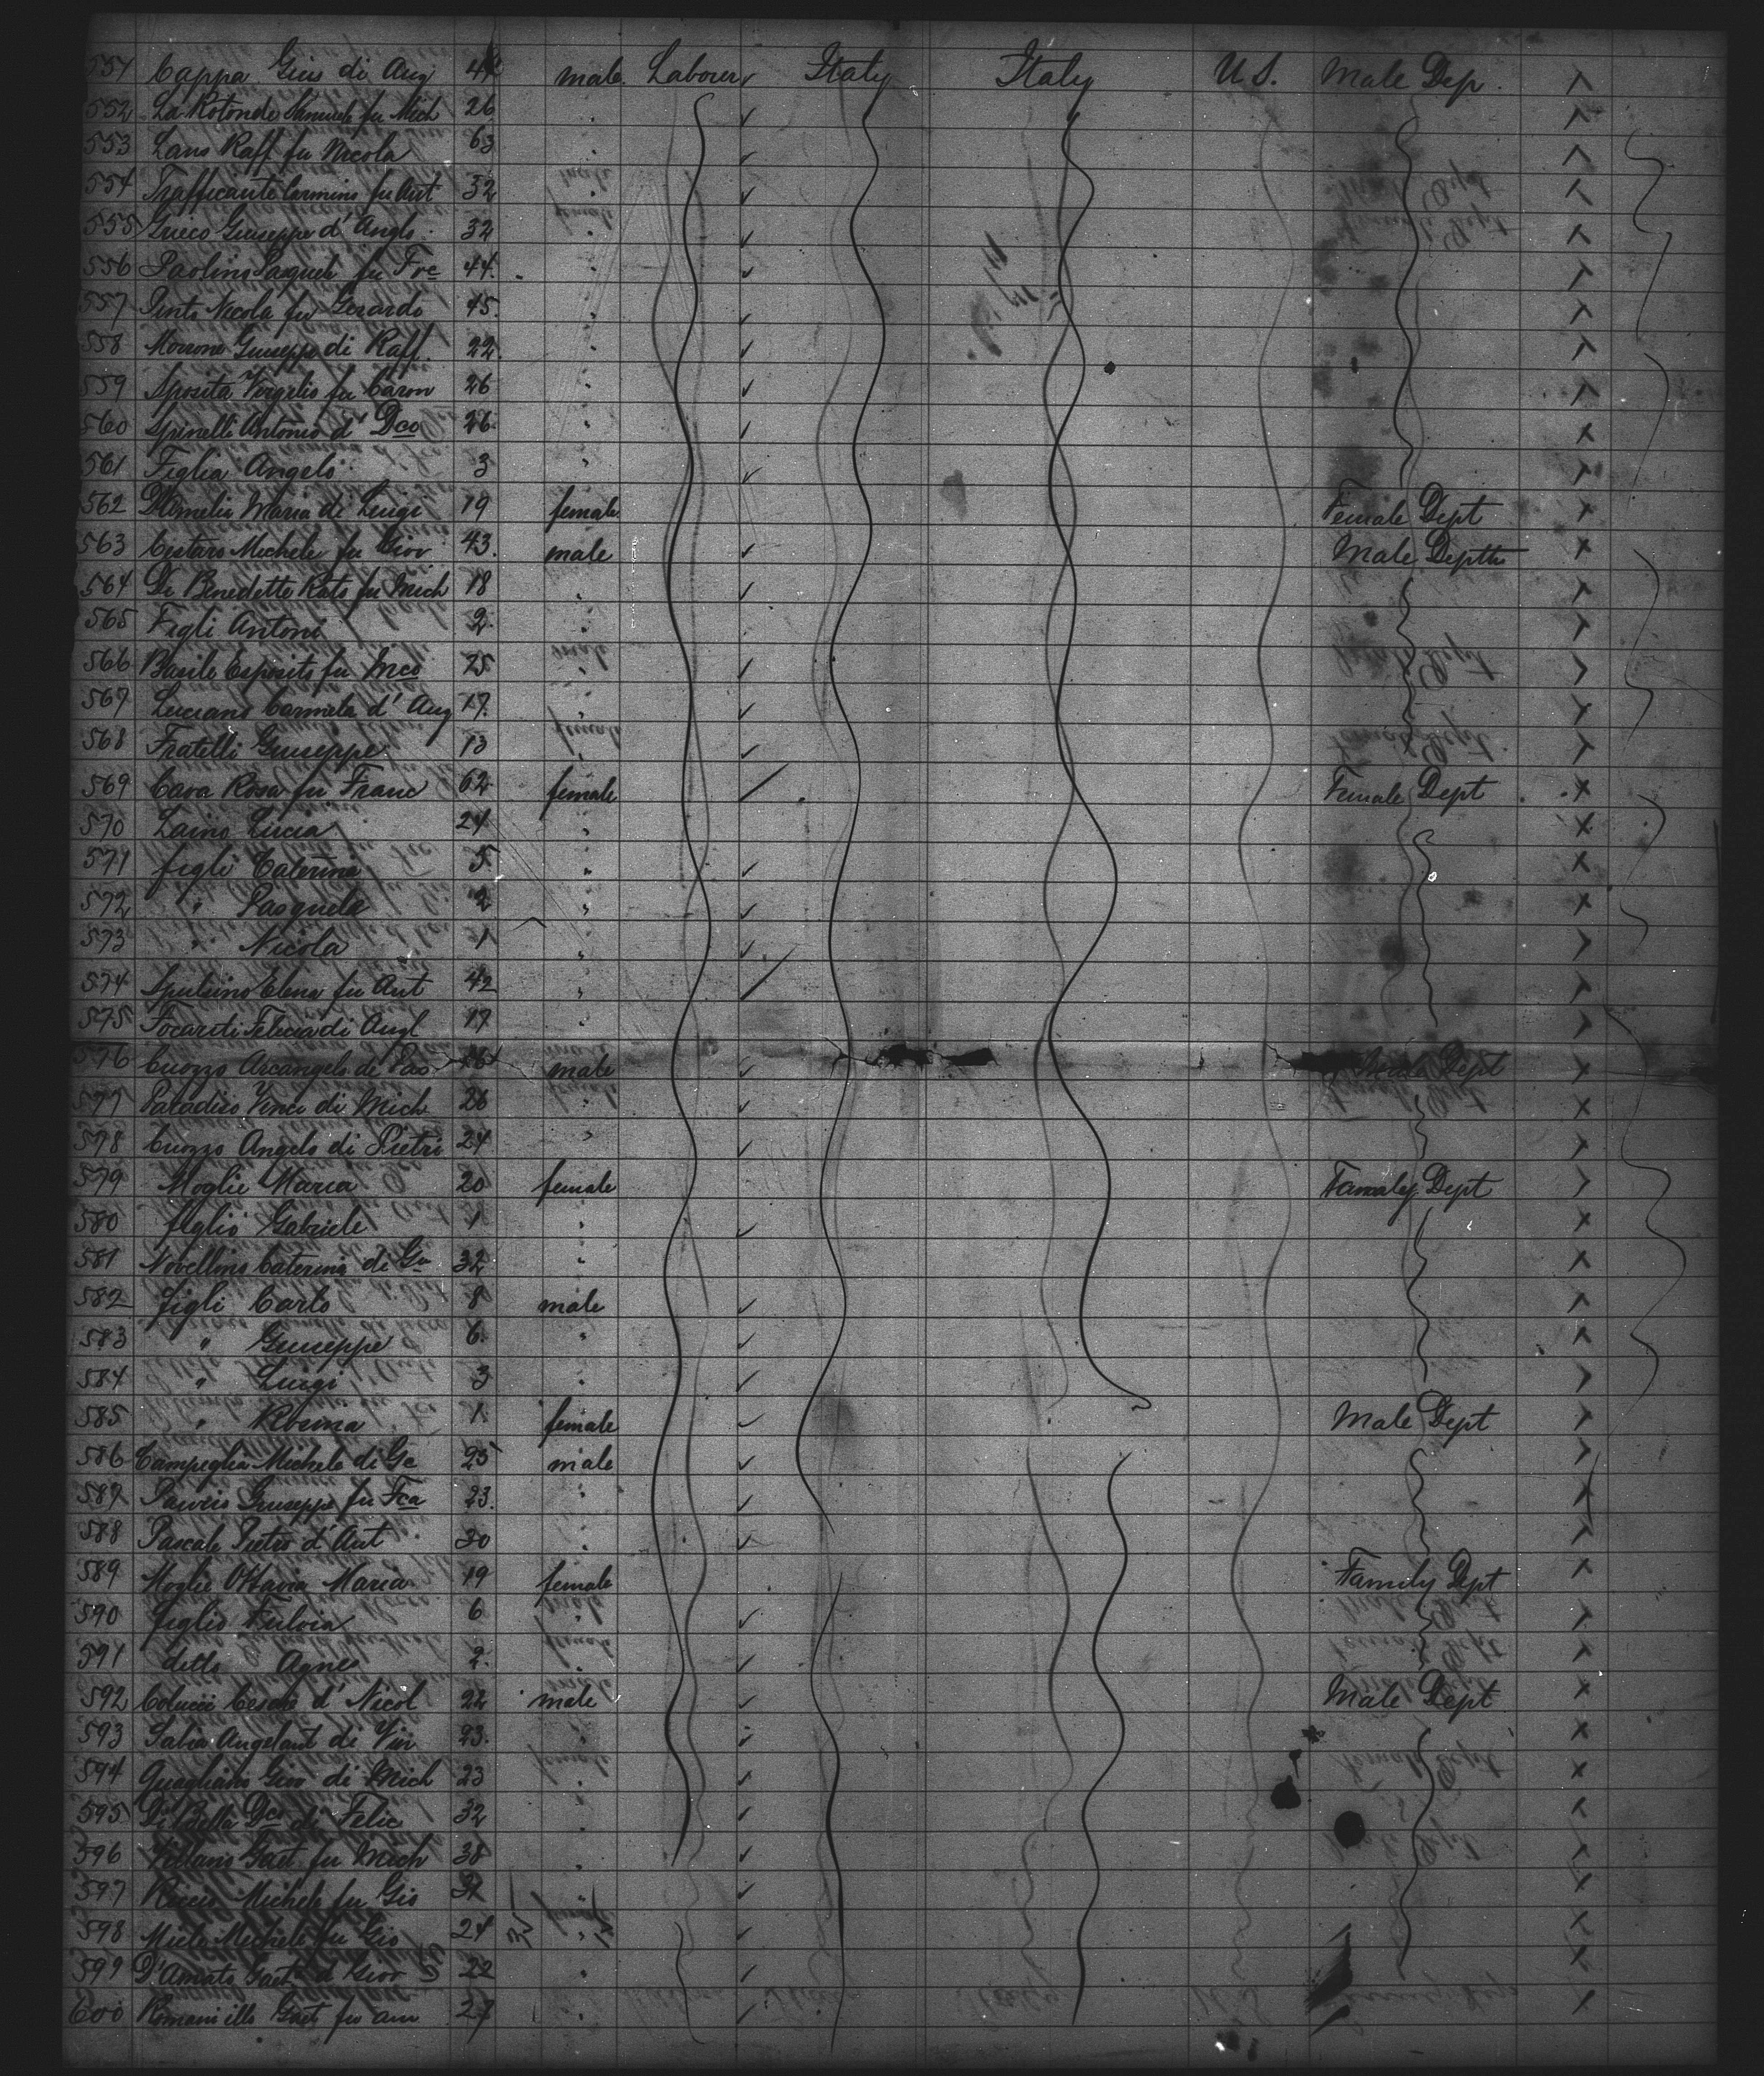 551 Cappa Gius di Aug male Laborer Italy Italy U.S. Male Dep.
552 La Rotonde Samuele fu Mich 26
553 Lans Raff fu Nicola 63 "
554 Trafficante Carmino fu Ant 32 "
555 Grieco Giuseppe d' Anglo 32 "
556 Paolino Pasquale fu Fco 44 "
557 Pinto Nicola fu Gerardo 45 "
558 Morrone Giuseppe di Raff 22 "
559 Sposita Virgilio fu Caron 26 "
560 Spinelli Antonio d' Dco 26 "
561 Figlia Angelo 3 "
562 D'Amelia Maria di Luigi 19 female Female Dept
563 Cestaro Michele fu Giov 43 male Male Dept
564 Di Benedetto Rato fu Mich 18 "
565 Figli Antoni 2 "
566 Basile Esposito fu Mco 25 "
567 Luciano Carmela d' Aug 17 "
568 Fratelli Giuseppe 13 "
569 Cava Rosa fu Franc 62 female Female Dept
570 Laino Lucia 24 "
571 figli Caterina 5 "
572 " Pasquale 2 "
573 " Nicola 1 "
574 Elena fu Ant 42 "
575 Felicia di Angl 17
576 Cuozzo Arcangelo di Pas 16 male Male Dept
577 Paladiso Vinc di Mich 26 "
578 Cuozzo Angelo di Pietri 24 "
579 Moglie Maria 20 female Famaly Dept
580 figlio Gabriele 1 "
581 Novellino Caterina di Gu 32 "
582 figli Carlo 8 male
583 " Giuseppe 6 "
584 " Luigi 3 "
585 " Rosina 1 female Male Dept
586 Campeglia Michele di Ge 25 male
587 Giuseppe fu Fca 23 "
588 Pascale Pietro d' Ant 30 "
589 Moglie Ottavia Maria 19 female Family Dept
590 figlio Fulvia 6 "
591 ditto Agnes 2 "
592 Colucci Cesare d' Nicol 22 male Male Dept
593 Salia Angelant di Vin 23 "
594 Quagliano Giov di Mich 23 "
595 Di Bella Dco di Felic 32 "
596 Villano Gaet fu Mich 38 "
597 Riccio Michele fu Gio "
598 Miele Michele fu Gio 24 "
599 D'Amato Gaet d' Giov 22 "
600 Romaniello Gaet fu am 27 "